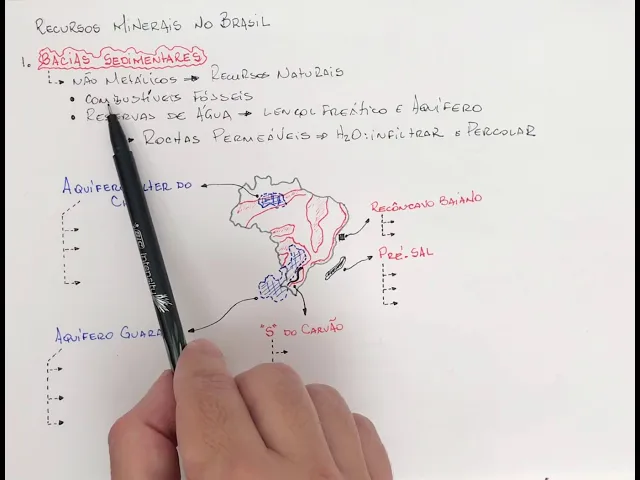 RECURSOS MINERAIS NO BRASIL
1. BACIAS SEDIMENTARES
NÃO METÁLICOS → RECURSOS NATURAIS
• COMBUSTÍVEIS FÓSSEIS
• RESERVAS DE ÁGUA → LENÇOL FREÁTICO E AQUÍFERO
ROCHAS PERMEÁVEIS ⇒ H2O: INFILTRAR E PERCOLAR
AQUÍFERO ALTER DO
RECÔNCAVO BAIANO
PRÉ-SAL
AQUÍFERO
"S" DO CARVÃO
Intensity